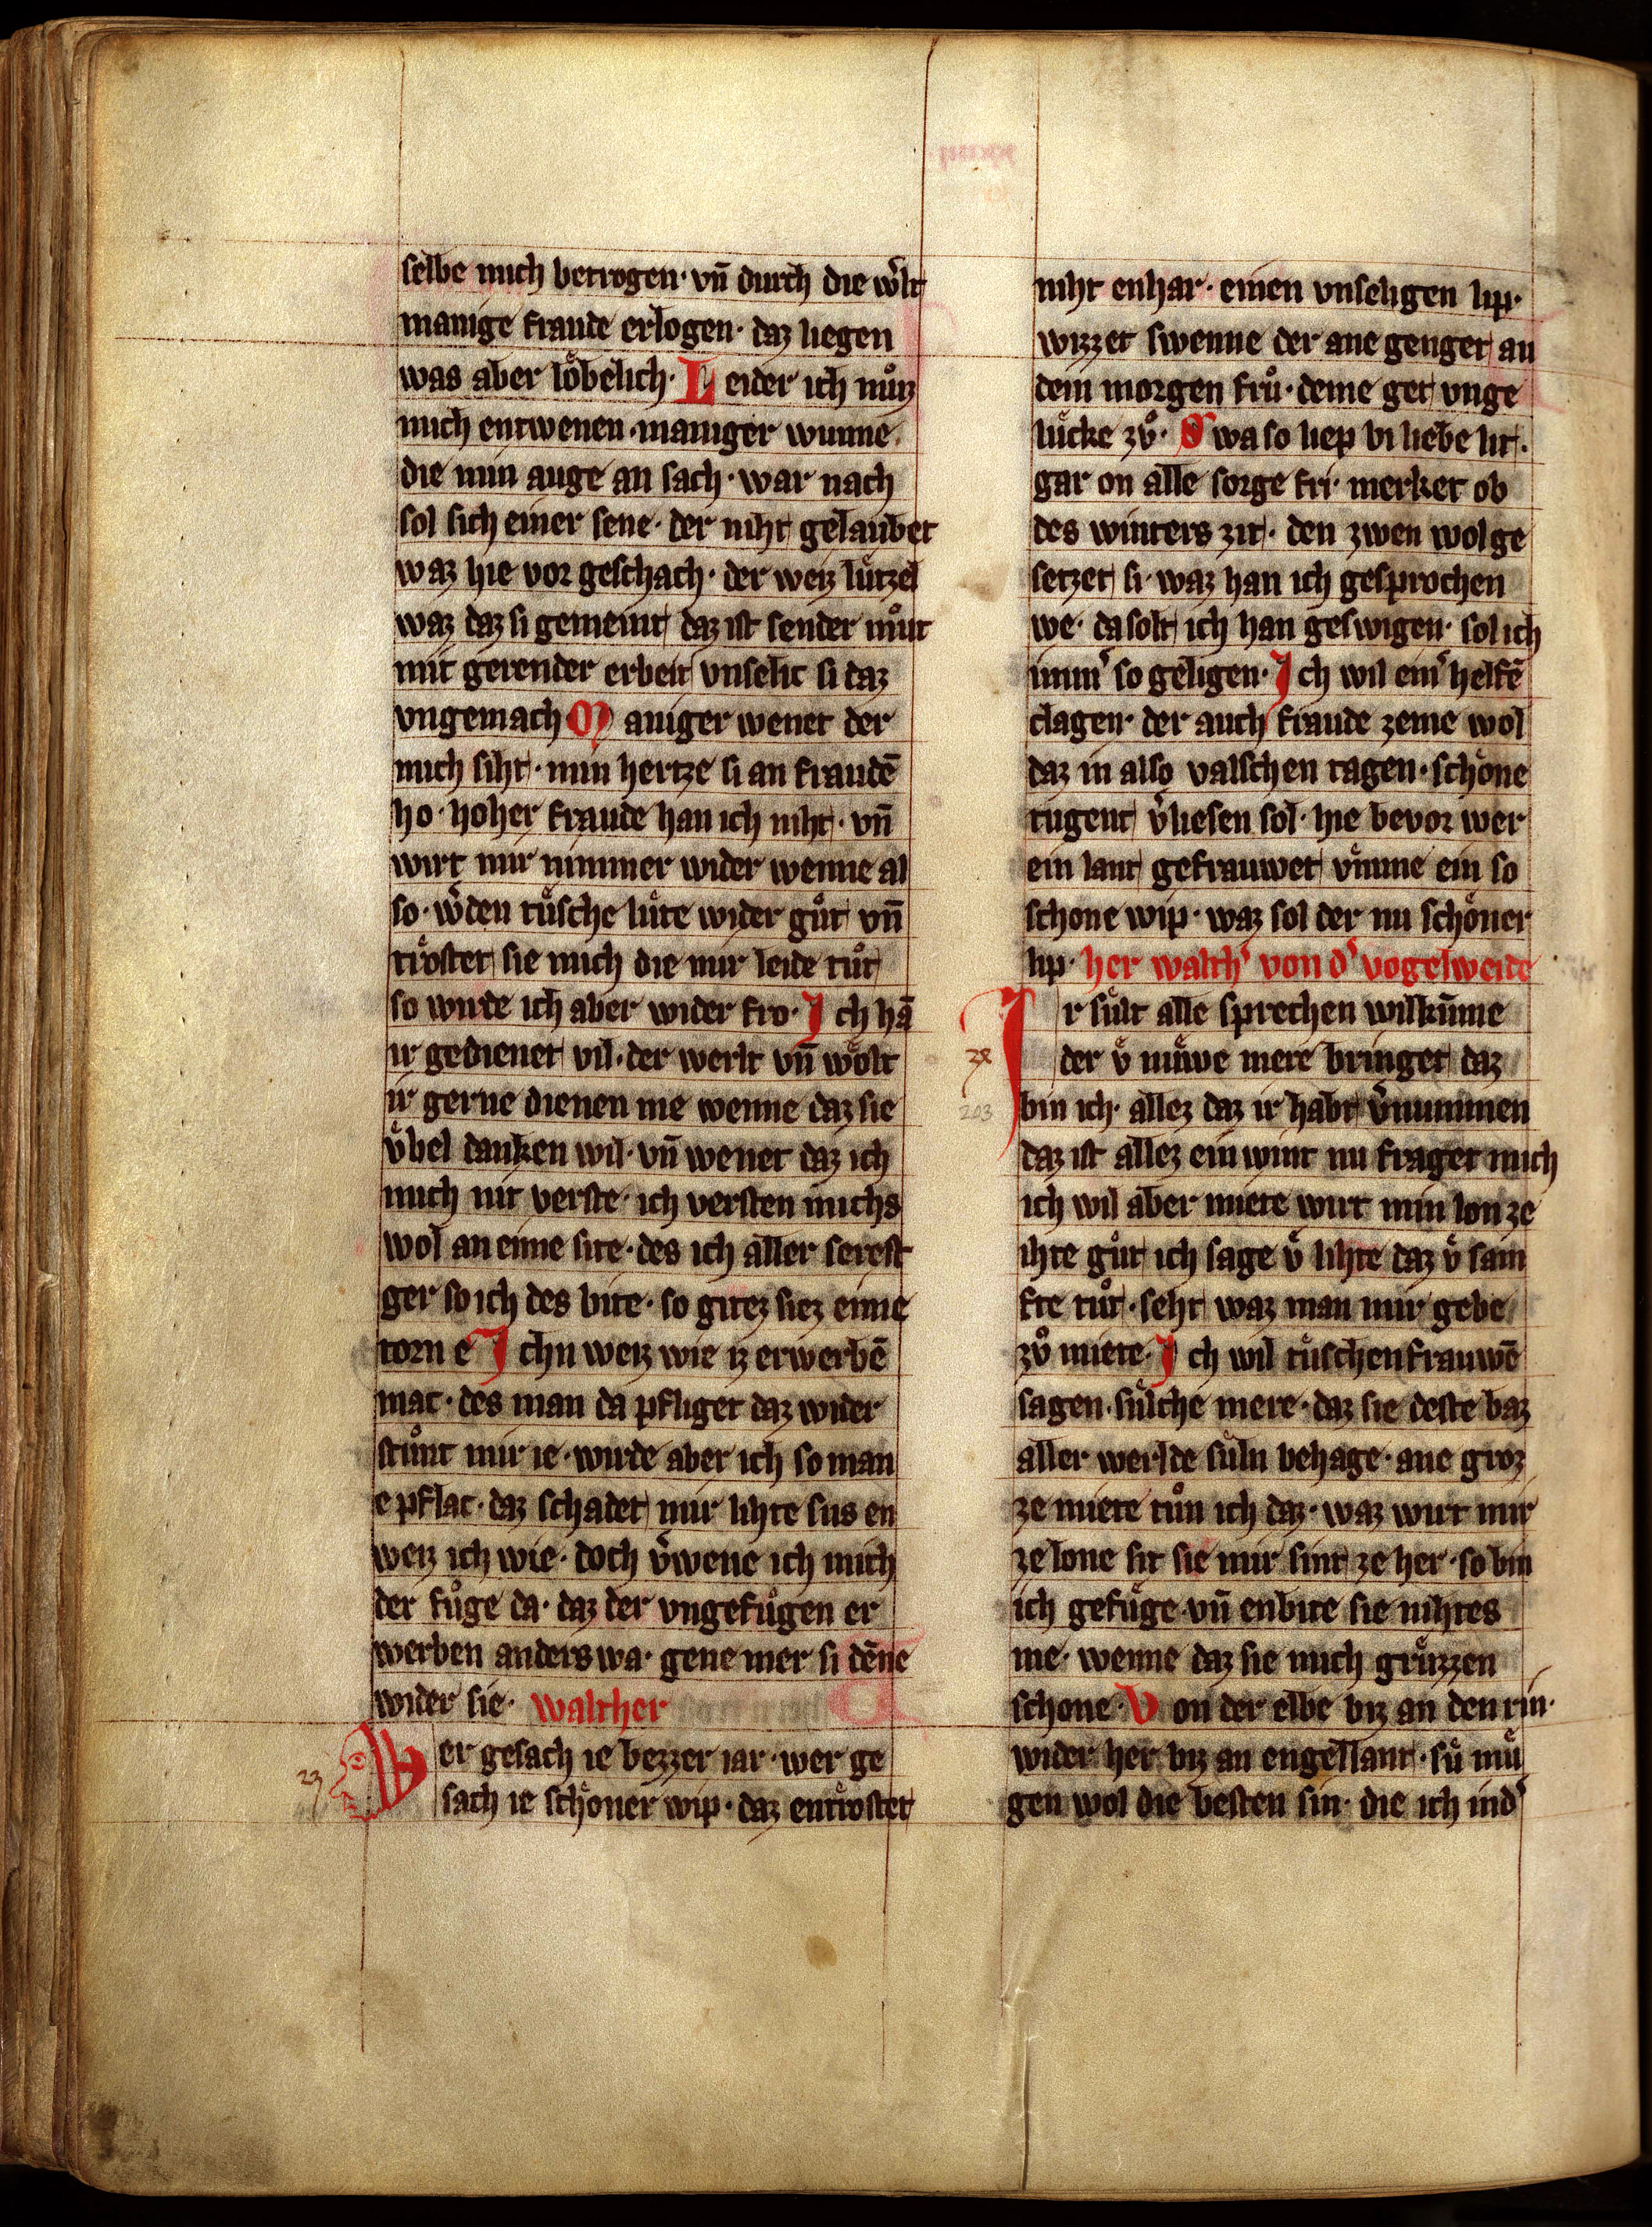 selbe mich betrogen· vn̄ durch die w̾lt
manige fraude erlogen· daz liegen
was aber loͤbelich· Leider ich muͦz
mich entwenen· maniger wunne·
die min auge an sach· war nach
sol sich einer sene· der niht gelaubet
waz hie vor geschach· der weiz luͤtzel
waz daz si gemeint daz ist sender muͦt
mit gerender erbeit vnselic si daz
vngemach Maniger wenet der
mich siht· min hertze si an fraudē
ho· hoher fraude han ich niht· vn̄
wirt mir nimmer wider wenne al
so· w̾den tuͤsche luͤte wider guͦt vn̄
troͤstet sie mich die mir leide tuͦt
so wirde ich aber wider fro· Ich hā
ir gedienet vil· der werlt vn̄ woͤlt
ir gerne dienen me wenne daz sie
vͤbel danken wil· vn̄ wenet daz ich
mich nit verste· ich versten michs
wol an eime site· des ich aller serest
ger so ich des bite· so gitez siez eime
torn e Ichn weiz wie iz erwerbē
mac· des man da pfliget daz wider
stuͦnt mir ie· wirde aber ich so man
e pflac· daz schadet mir lihte sus en
weiz ich wie· doch v̾wene ich mich
der fuͦge da· daz der vngefuͤgen er
werben anders wa· gene mer si dēne
wider sie· walther
23
Wer gesach ie bezzer iar· wer ge
sach ie schoͤner wip· daz entroͤstet
niht enhar· einen vnseligen lip·
wizzet swenne der ane genget an
dem morgen fruͦ· deme get vnge
luͤcke zvͦ· Swa so liep bi liebe lit·
gar on alle sorge fri· merket ob
des winters zit· den zwen wol ge
setzet si· waz han ich gesprochen
we· da solt ich han geswigen· sol ich
imm̾ so geligen· Ich wil ein̾ helfē
clagen· der auch fraude zeme wol
daz in also valschen tagen· schoͤne
tugent v̾liesen sol· hie bevor wer
ein lant gefrauwet vͤmme ein so
schone wip· waz sol der nu schoͤner
lip· her walth̾ von d̾ vogelweide
24
203
Ir suͤlt alle sprechen willkūme
der vͤ nuͤwe mere bringet daz
bin ich· allez daz ir habt v̾nummen
daz ist allez ein wint nu fraget mich
ich wil aber miete wirt min lon ze
ihte guͦt ich sage vͤ lihte daz vͤ sam
fte tuͦt· seht waz man mir gebe
zvͦ miete· Ich wil tuͤschen frauwē
sagen· suͤlche mere· daz sie deste baz
aller werlde suͤln behage· ane groz
ze miete tuͦn ich daz· waz wirt mir
ze lone sit sie mir sint ze her· so bin
ich gefuͤge vn̄ enbite sie nihtes
me· wenne daz sie mich gruͤzzen
schone· Von der elbe biz an den rin·
wider her biz an engellant· suͤ muͤ
gen wol die besten sin· die ich ind̾